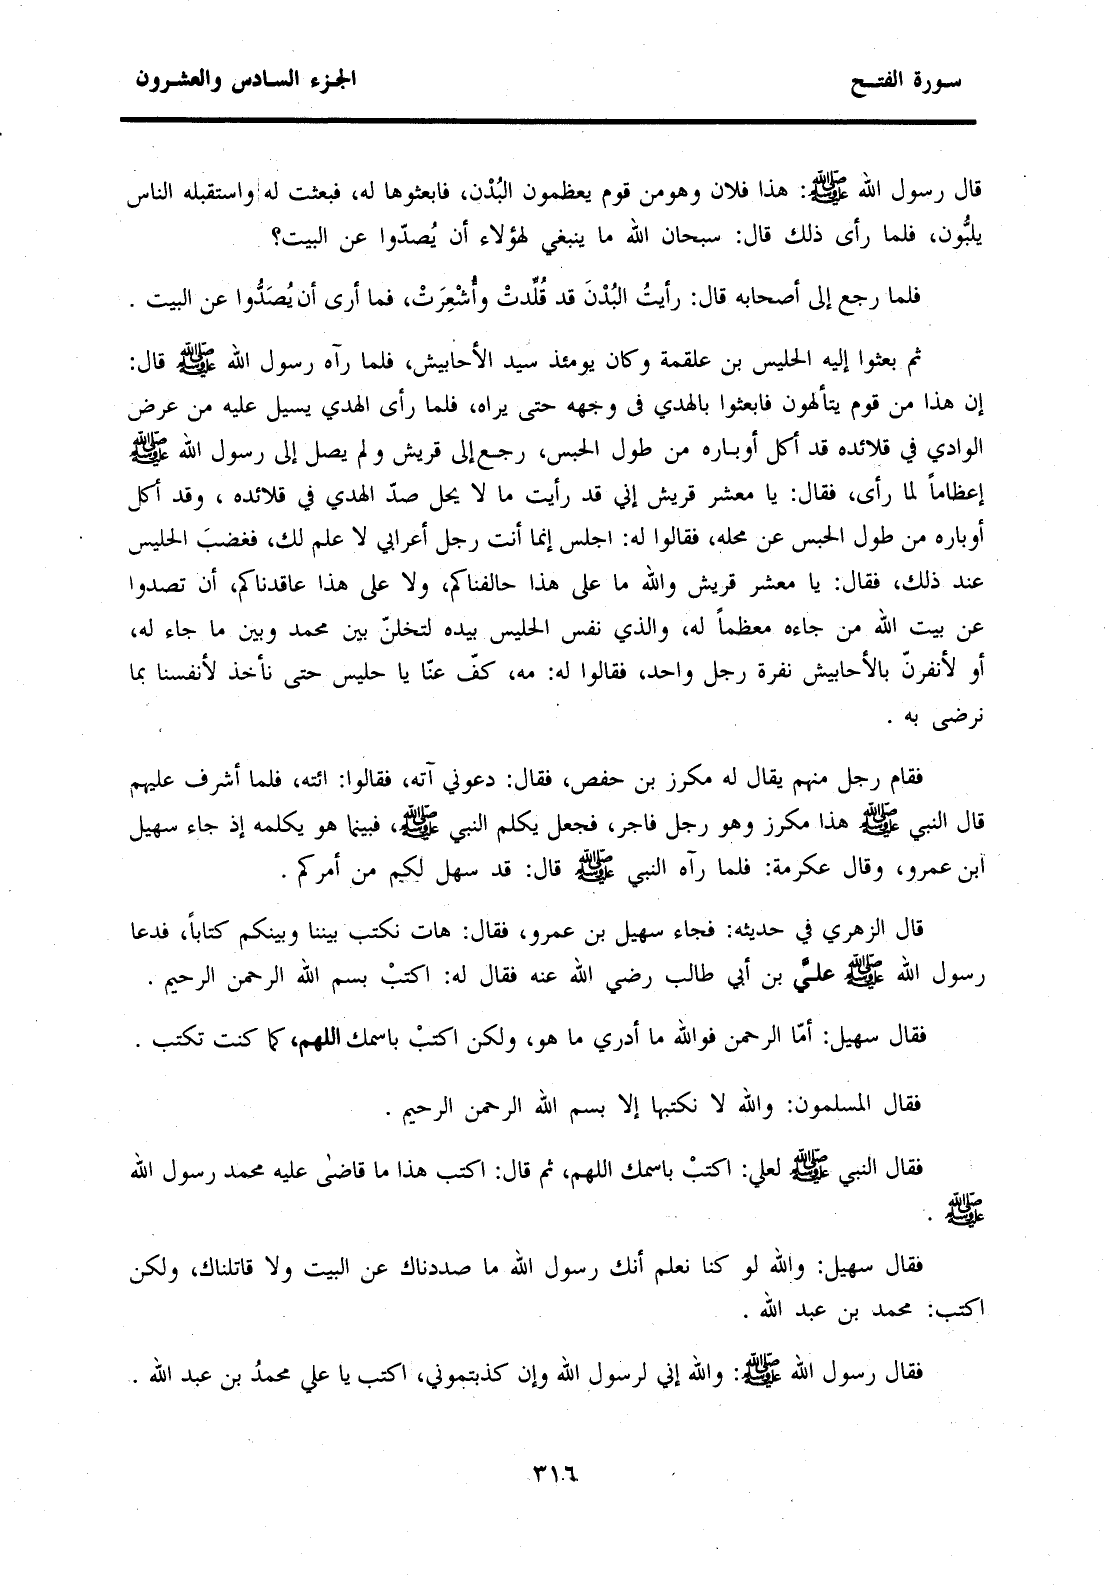 سورة الفتح
الجزء السادس والعشرون
قال رسول الله ﷺ: هذا فلان وهومن قوم يعظمون البُدْن، فابعثوها له، فبعثت له واستقبله الناس
يلبُّون، فلما رأى ذلك قال: سبحان الله ما ينبغي لهؤلاء أن يُصدّوا عن البيت؟
فلما رجع إلى أصحابه قال: رأيتُ البُدْنَ قد قُلِّدتْ وأُشْعِرَتْ، فما أرى أن يُصَدُّوا عن البيت .
ثم بعثوا إليه الحليس بن علقمة وكان يومئذ سيد الأحابيش، فلما رآه رسول الله ﷺ قال:
إن هذا من قوم يتألهون فابعثوا بالهدي فى وجهه حتى يراه، فلما رأى الهدي يسيل عليه من عرض
الوادي في قلائده قد أكل أوباره من طول الحبس، رجع إلى قريش ولم يصل إلى رسول الله ﷺ
إعظاماً لما رأى، فقال: يا معشر قريش إني قد رأيت ما لا يحل صدّ الهدي في قلائده ، وقد أكل
أوباره من طول الحبس عن محله، فقالوا له: اجلس إنما أنت رجل أعرابي لا علم لك، فغضبَ الحليس
عند ذلك، فقال: يا معشر قريش والله ما على هذا حالفناكم، ولا على هذا عاقدناكم، أن تصدوا
عن بيت الله من جاءه معظماً له، والذي نفس الحليس بيده لتخلنّ بين محمد وبين ما جاء له،
أو لأنفرنّ بالأحابيش نفرة رجل واحد، فقالوا له: مه، كفّ عنّا يا حليس حتى نأخذ لأنفسنا بما
نرضى به .
فقام رجل منهم يقال له مكرز بن حفص، فقال: دعوني آته، فقالوا: ائته، فلما أشرف عليهم
قال النبي ﷺ هذا مكرز وهو رجل فاجر، فجعل يكلم النبي ﷺ، فبينما هو يكلمه إذ جاء سهيل
ابن عمرو، وقال عكرمة: فلما رآه النبي ﷺ قال: قد سهل لكم من أمركم .
قال الزهري في حديثه: فجاء سهيل بن عمرو، فقال: هات نكتب بيننا وبينكم كتاباً، فدعا
رسول الله ﷺ عليَّ بن أبي طالب رضي الله عنه فقال له: اكتبْ بسم الله الرحمن الرحيم .
فقال سهيل: أمّا الرحمن فوالله ما أدري ما هو، ولكن اكتبْ باسمك اللهم، كما كنت تكتب .
فقال المسلمون: والله لا نكتبها إلا بسم الله الرحمن الرحيم .
فقال النبي ﷺ لعلي: اكتبْ باسمك اللهم، ثم قال: اكتب هذا ما قاضىٰ عليه محمد رسول الله
ﷺ .
فقال سهيل: والله لو كنا نعلم أنك رسول الله ما صددناك عن البيت ولا قاتلناك، ولكن
اكتب: محمد بن عبد الله .
فقال رسول الله ﷺ: والله إني لرسول الله وإن كذبتموني، اكتب يا علي محمدُ بن عبد الله .
٣١٦